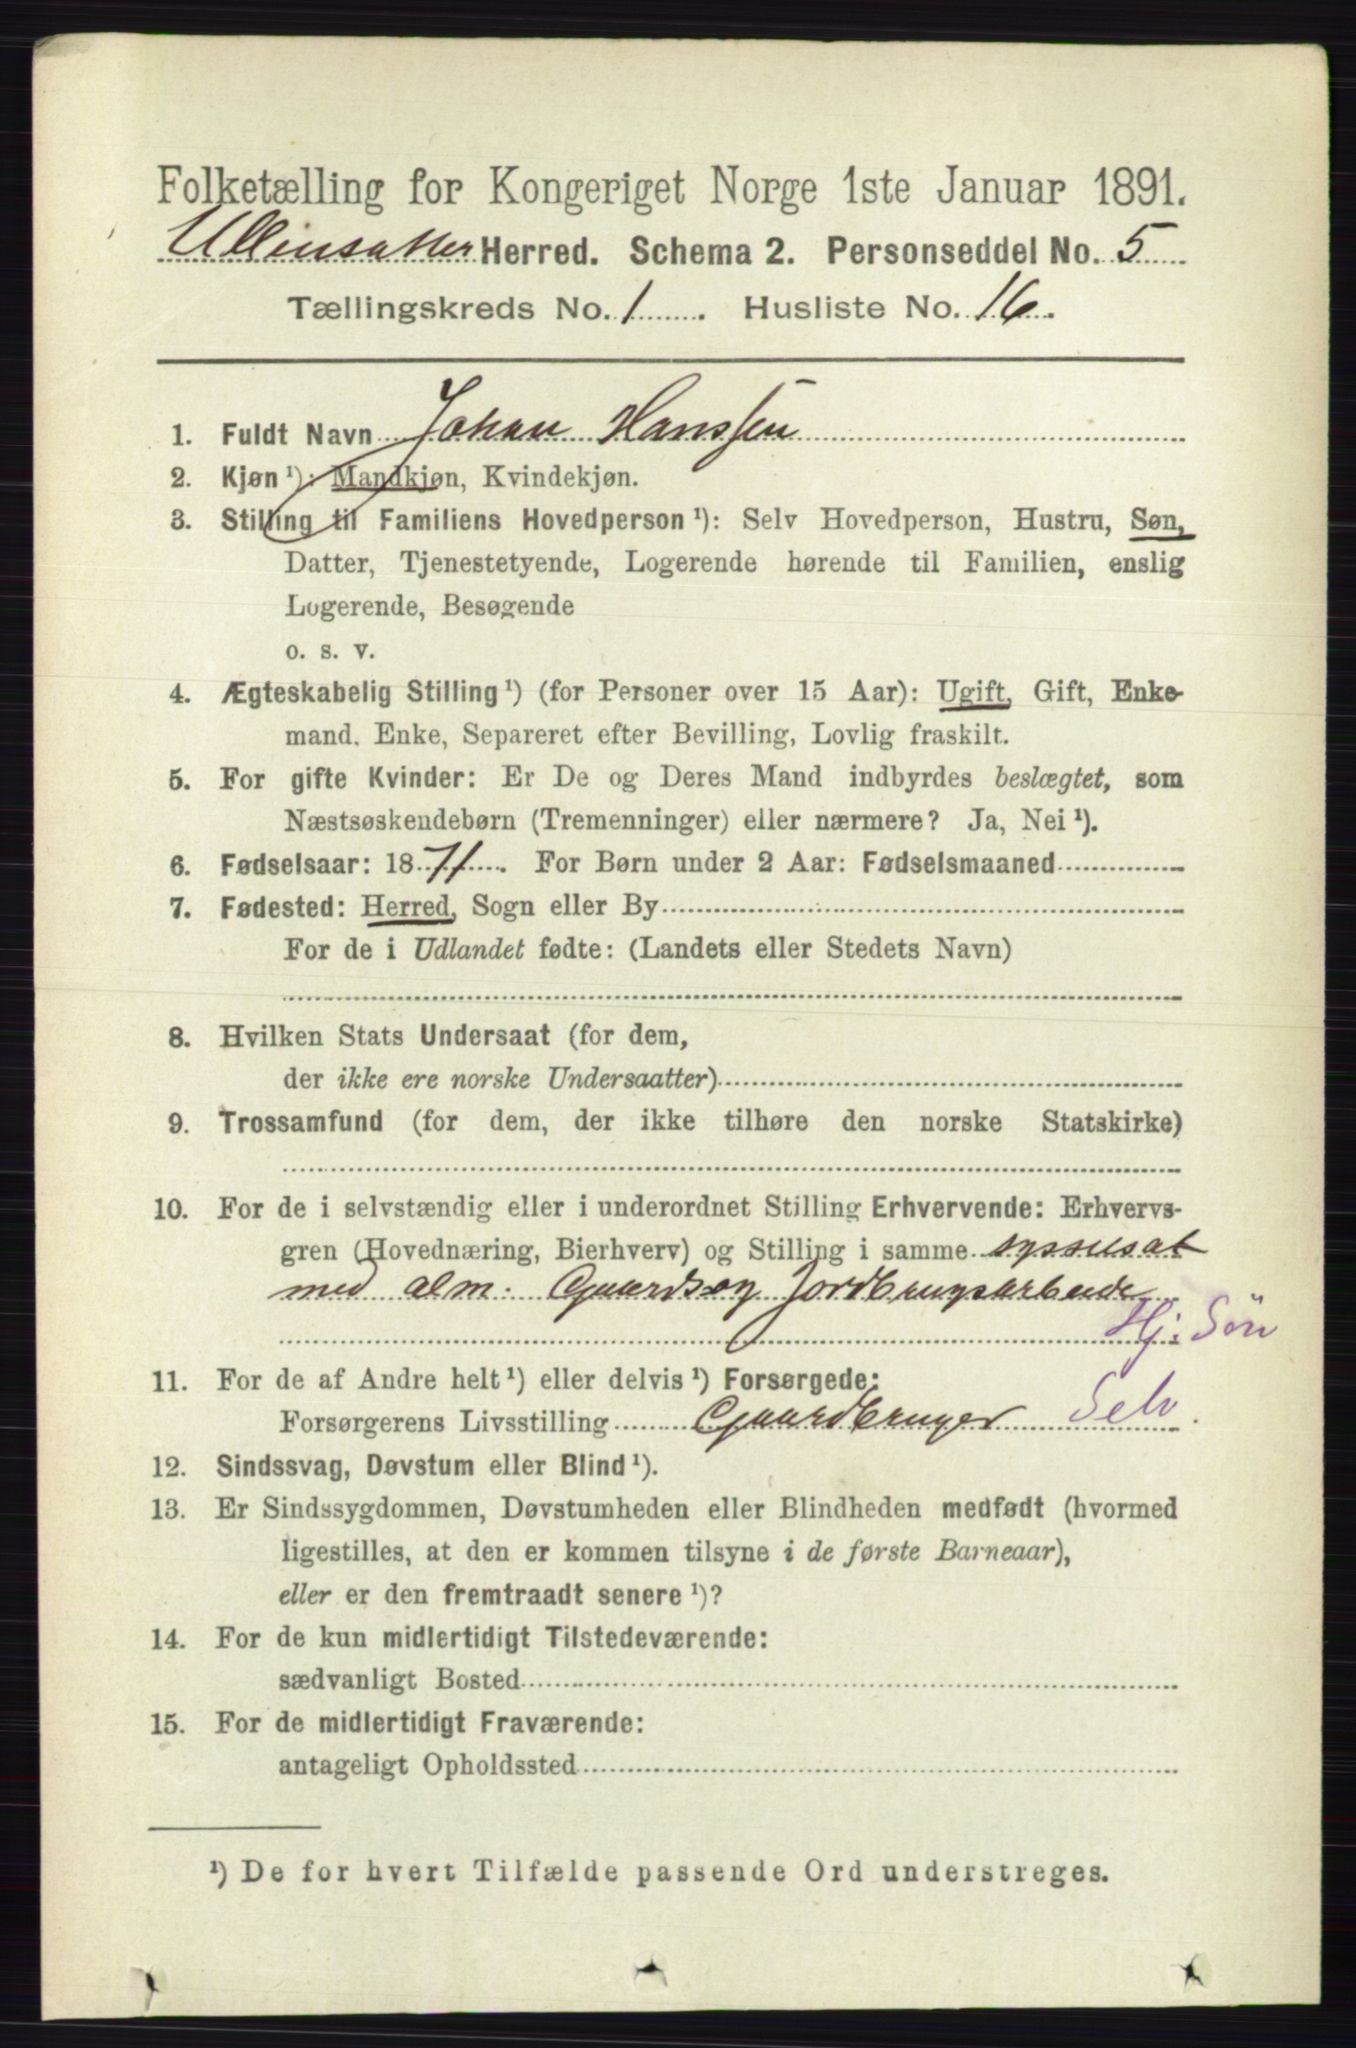 Folketælling for Kongeriget Norge 1ste Januar 1891.
Ullensaker Herred. Schema 2. Personseddel No. 5
Tællingskreds No. 1. Husliste No. 16.
1. Fuldt Navn Johan Hanssen
2. Kjøn¹): Mandkjøn, Kvindekjøn.
3. Stilling til Familiens Hovedperson¹): Selv Hovedperson, Hustru, Søn,
Datter, Tjenestetyende, Logerende hørende til Familien, enslig
Logerende, Besøgende
o. s. v.
4. Ægteskabelig Stilling¹) (for Personer over 15 Aar): Ugift, Gift, Enke-
mand. Enke, Separeret efter Bevilling, Lovlig fraskilt.
5. For gifte Kvinder: Er De og Deres Mand indbyrdes beslægtet, som
Næstsøskendebørn (Tremenninger) eller nærmere? Ja, Nei¹).
6. Fødselsaar: 1871. For Børn under 2 Aar: Fødselsmaaned
7. Fødested: Herred, Sogn eller By
For de i Udlandet fødte: (Landets eller Stedets Navn)
8. Hvilken Stats Undersaat (for dem,
der ikke ere norske Undersaatter)
9. Trossamfund (for dem, der ikke tilhøre den norske Statskirke)
10. For de i selvstændig eller i underordnet Stilling Erhvervende: Erhvervs-
gren (Hovednæring, Bierhverv) og Stilling i samme sysselsat
med alm. Gaards og Jordbrugsarbeide
Hj. Søn
11. For de af Andre helt¹) eller delvis¹) Forsørgede:
Forsørgerens Livsstilling Gaardbruger Selv.
12. Sindssvag, Døvstum eller Blind¹).
13. Er Sindssygdommen, Døvstumheden eller Blindheden medfødt (hvormed
ligestilles, at den er kommen tilsyne i de første Barneaar),
eller er den fremtraadt senere¹)?
14. For de kun midlertidigt Tilstedeværende:
sædvanligt Bosted
15. For de midlertidigt Fraværende:
antageligt Opholdssted
¹) De for hvert Tilfælde passende Ord understreges.